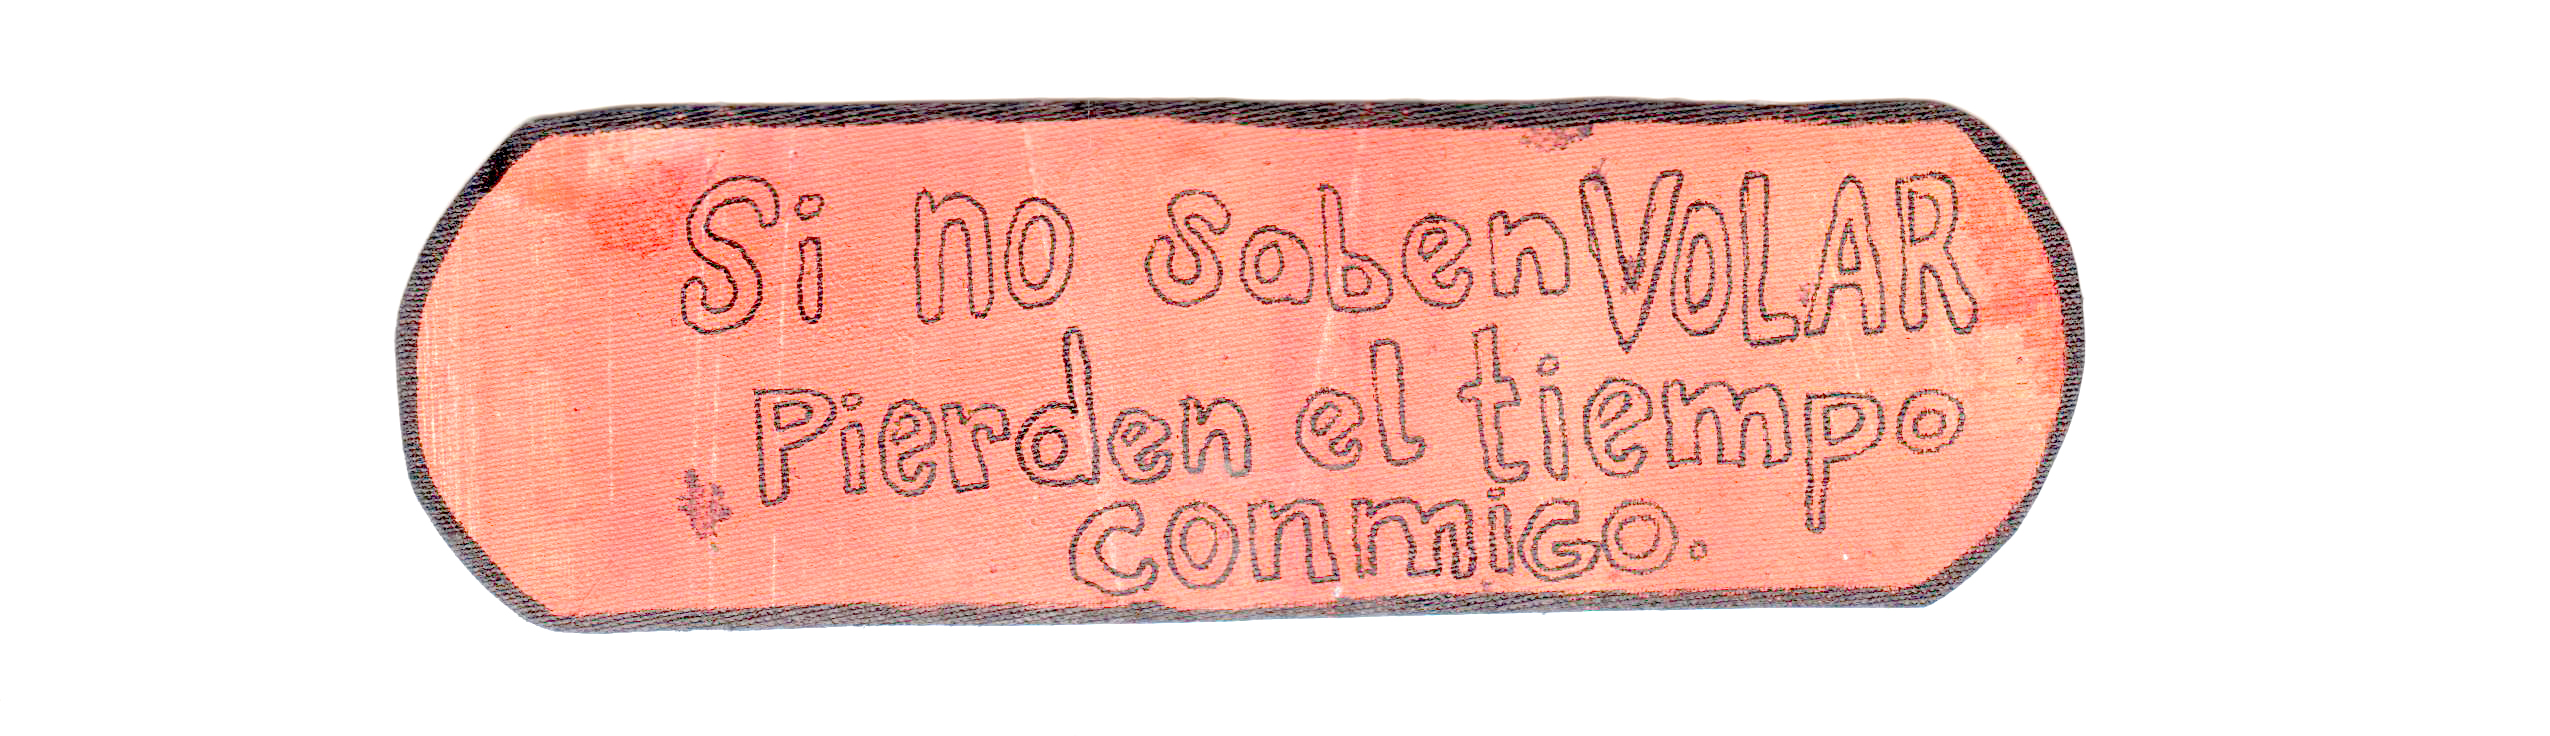 Si no saben VOLAR
Pierden el tiempo
conmiGo.